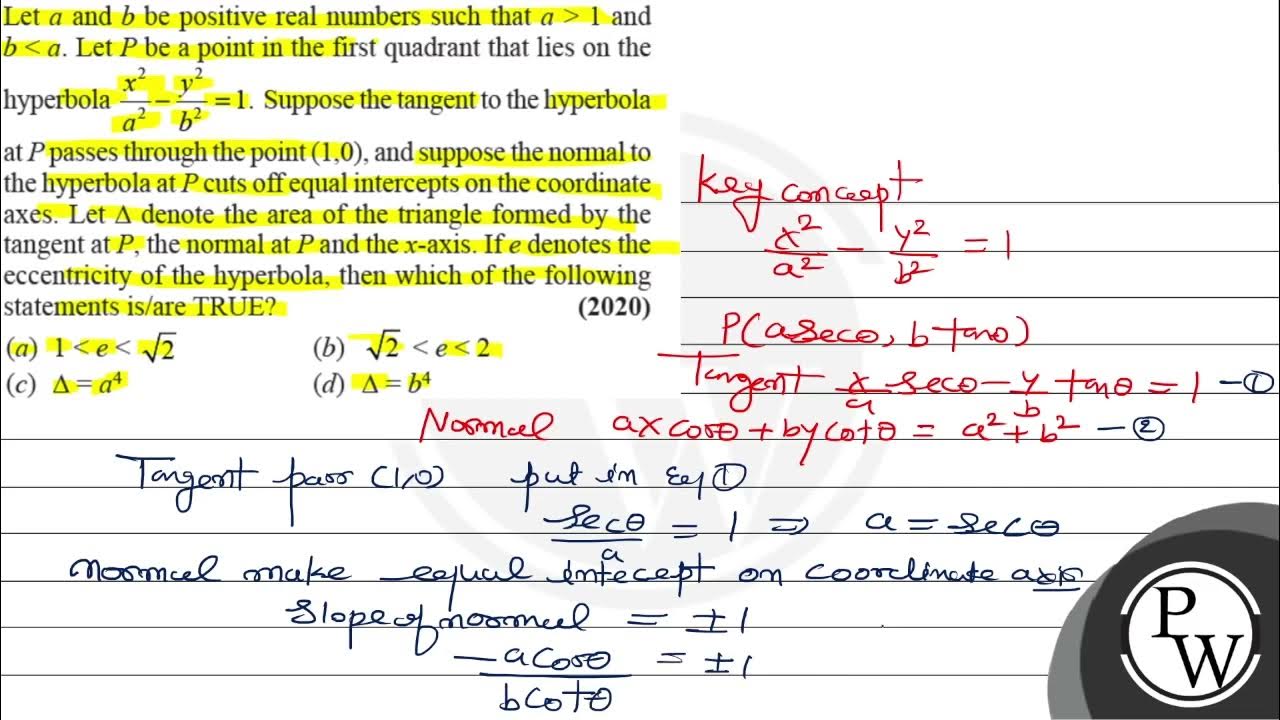 Let a and b be positive real numbers such that a > 1 and
b < a. Let P be a point in the first quadrant that lies on the
hyperbola x²/a² − y²/b² = 1. Suppose the tangent to the hyperbola
at P passes through the point (1,0), and suppose the normal to
the hyperbola at P cuts off equal intercepts on the coordinate
axes. Let Δ denote the area of the triangle formed by the
tangent at P, the normal at P and the x-axis. If e denotes the
eccentricity of the hyperbola, then which of the following
statements is/are TRUE? (2020)
(a) 1 < e < √2 (b) √2 < e < 2
(c) Δ = a⁴ (d) Δ = b⁴
Key concept
x²/a² − y²/b² = 1
P(a secθ, b tanθ)
Tangent x/a secθ − y/b tanθ = 1 – ①
Normal ax cosθ + by cotθ = a² + b² – ②
Tangent pass (1,0) put in Eq ①
secθ/a = 1 ⇒ a = secθ
normal make equal intecept on coordinate axis
Slope of normal = ±1
−a cosθ / b cotθ = ±1
P
W